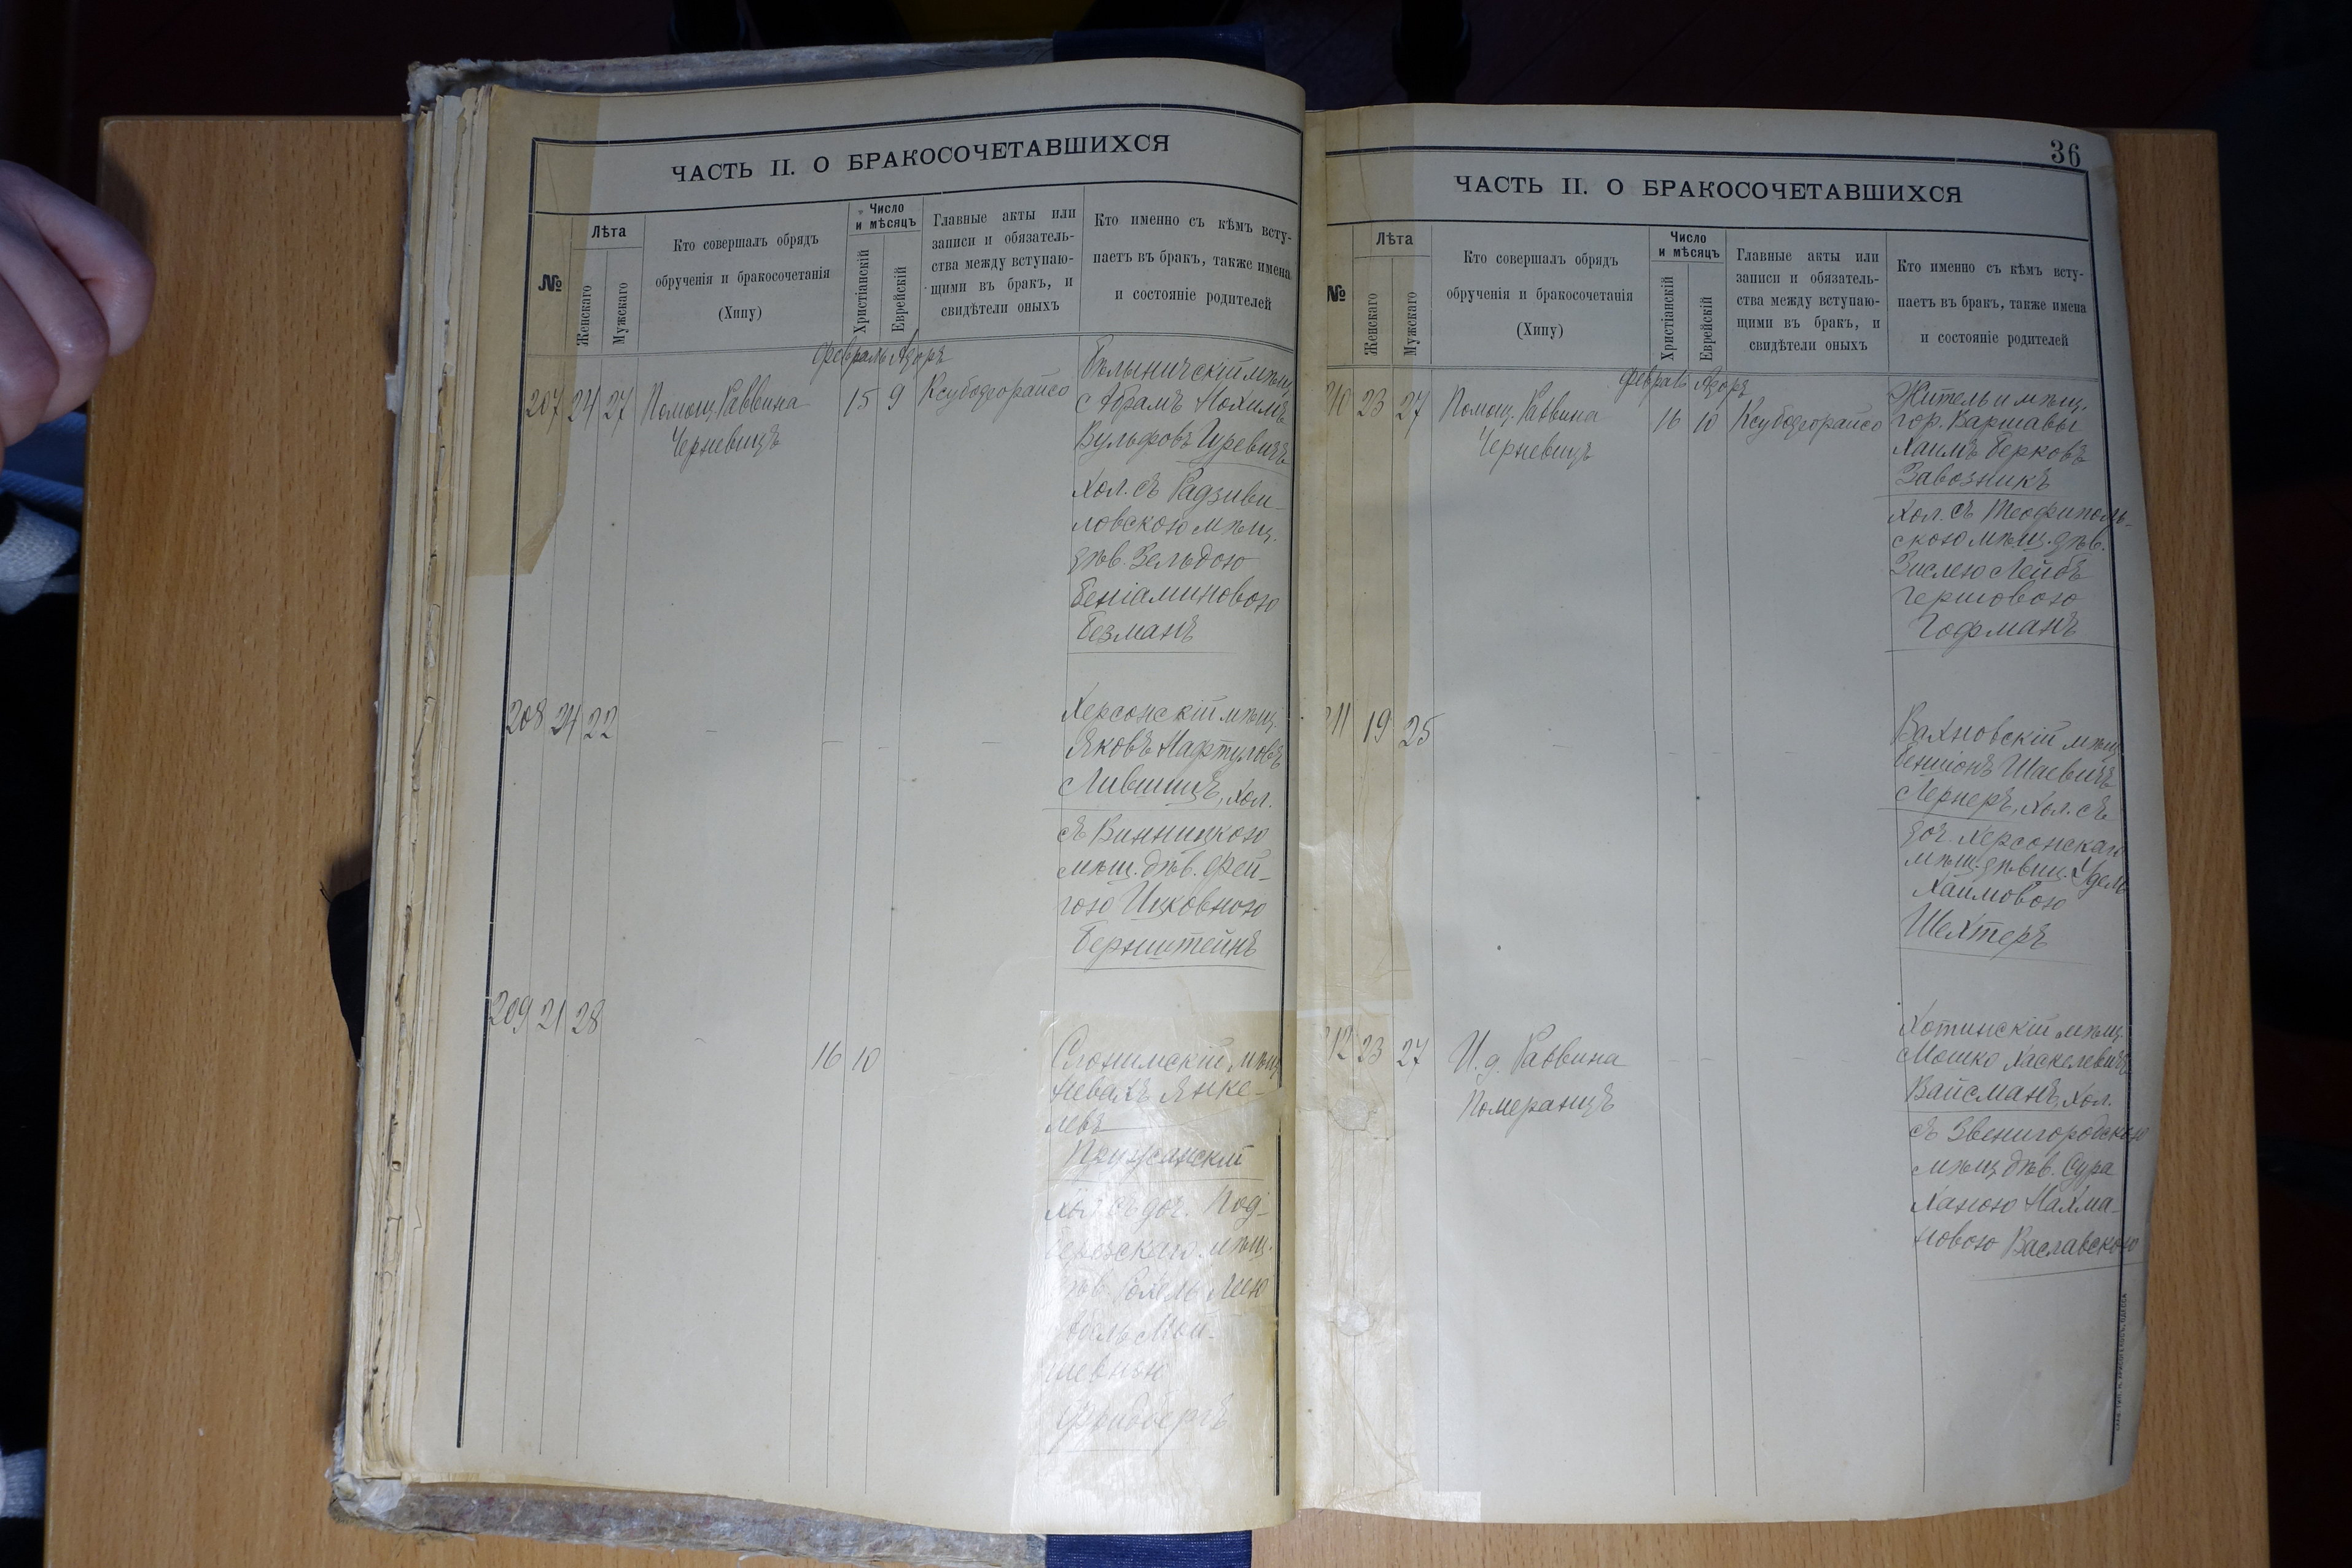 ЧАСТЬ II. О БРАКОСОЧЕТАВШИХСЯ
№
Лѣта
Женскаго
Мужскаго
Кто совершалъ обрядъ
обрученія и бракосочетанія
(Хипу)
Число
и мѣсяцъ
Христіанскій
Еврейскій
Главные акты или
записи и обязатель-
ства между вступаю-
щими въ бракъ, и
свидѣтели оныхъ
Кто именно съ кѣмъ всту-
паетъ въ бракъ, также имена
и состояніе родителей
Февраль Адоръ
207 24 27 Помощ. Раввина
Черневицъ
15 9
Бѣлыничскій мѣщ.
Абрамъ Нохимъ
Вульфовъ Гуревичъ
хол. съ Радзиви-
ловскою мѣщ.
дѣв. Зельдою
Беніаминовою
Безманъ
208 24 22
Херсонскій мѣщ.
Яковъ Нафтуловъ
Лившицъ, хол.
съ Винницкою
мѣщ. дѣв. Фей-
гою Ицковною
Бернштейнъ
209 21 28
16 10
Слонимскій мѣщ.
Невахъ Янке-
левъ
Пружанскій
хол. съ доч. Под-
березскаго мѣщ.
дѣв. Рохель Леею
Абель Мои-
шевною
Фридбергъ
36
ЧАСТЬ II. О БРАКОСОЧЕТАВШИХСЯ
№
Лѣта
Женскаго
Мужскаго
Кто совершалъ обрядъ
обрученія и бракосочетанія
(Хипу)
Число
и мѣсяцъ
Христіанскій
Еврейскій
Главные акты или
записи и обязатель-
ства между вступаю-
щими въ бракъ, и
свидѣтели оныхъ
Кто именно съ кѣмъ всту-
паетъ въ бракъ, также имена
и состояніе родителей
Февраль Адоръ
210 23 27 Помощ. Раввина
Черневицъ
16 10
Житель и мѣщ.
гор. Варшавы
Хаимъ Берковъ
Завозникъ
хол. съ Теофиполь-
скою мѣщ. дѣв.
Зислею Лейбъ
Гершовою
Гофманъ
211 19 25
Вахновскій мѣщ.
Бенціонъ Шаевичъ
Лернеръ, хол. съ
доч. Херсонскаго
мѣщ. дѣвиц. Удель
Хаимовою
Шехтеръ
212 23 27 И. д. Раввина
Померанцъ
Хотинскій мѣщ.
Мошко Хаскелевичъ
Вайсманъ, хол.
съ Звенигородскою
мѣщ. дѣв. Сура
Ханою Нахма-
новою Ваславскою